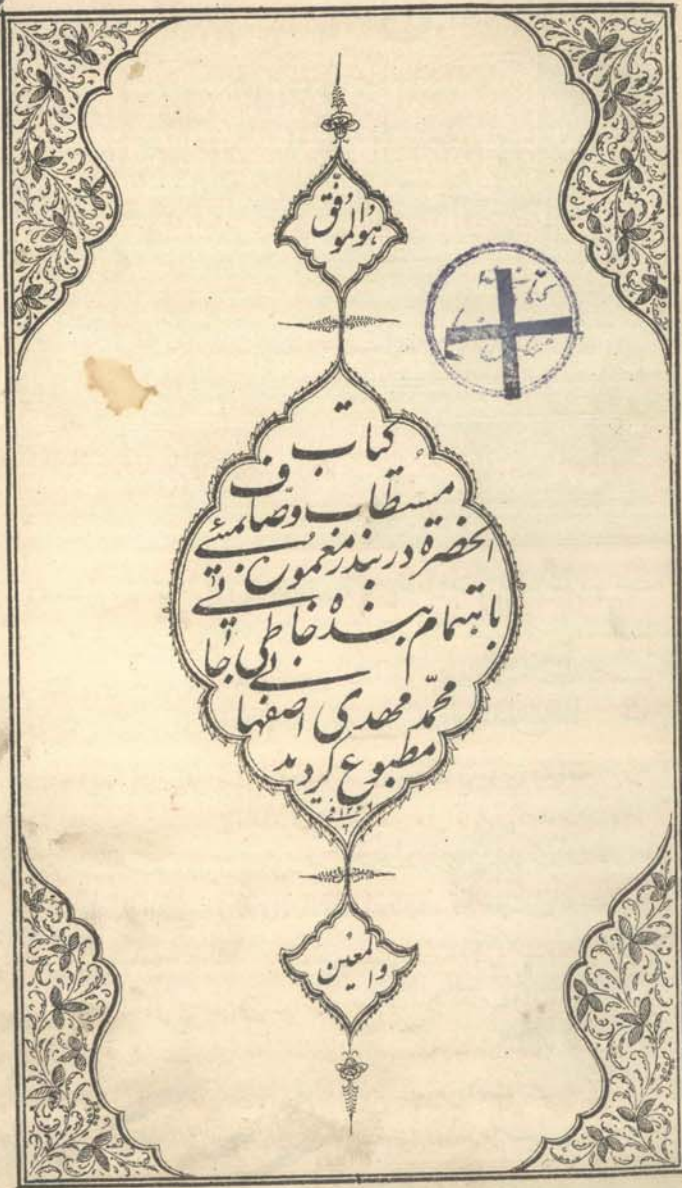 هو الموفّق
کتاب
مستطاب وصّاف
الحضرة در بندر معمور بمبئی
باهتمام بنده خاطی جانی
محمّد مهدی اصفهانی
مطبوع گردید
والمعین